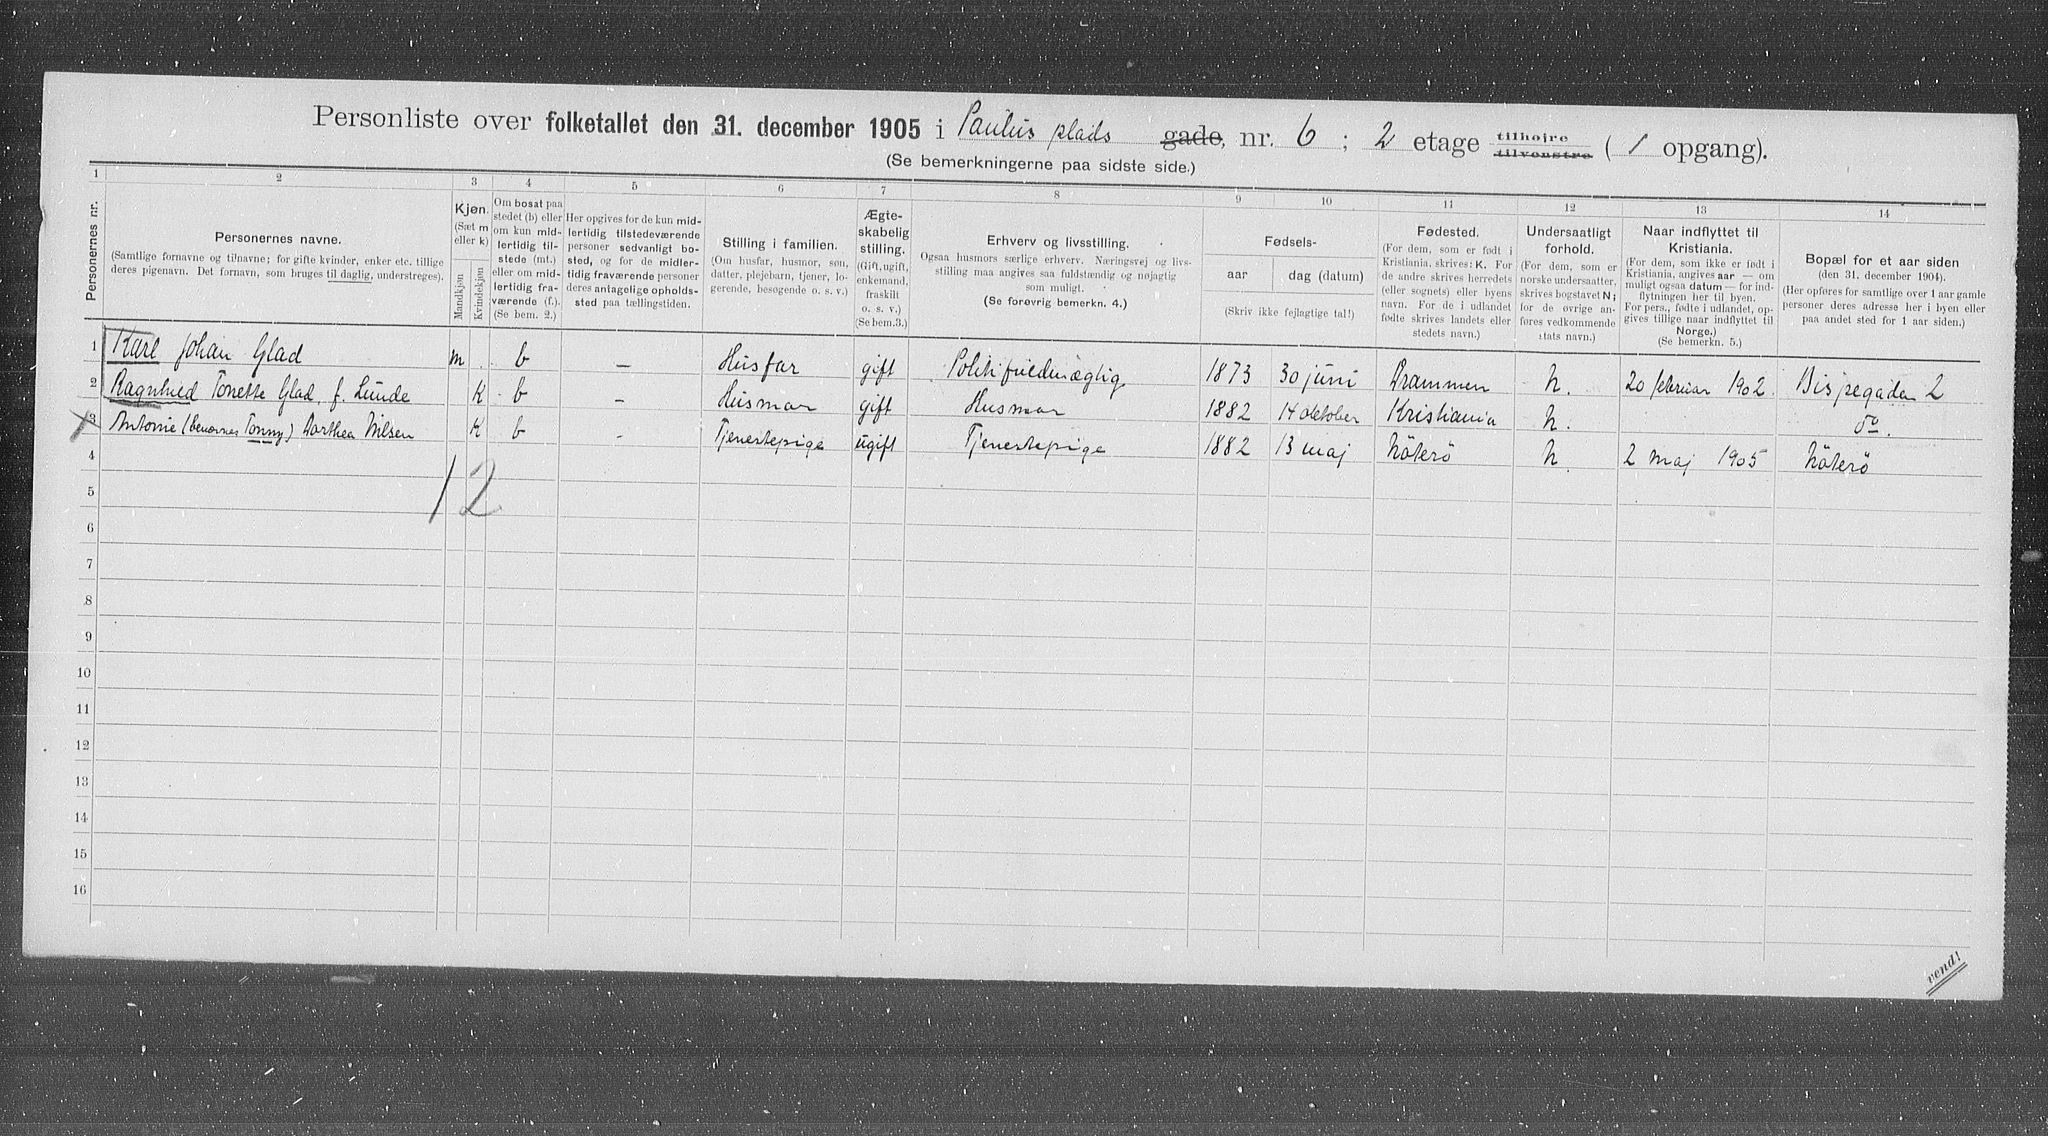 Personliste over folketallet den 31. december 1905 i Paulus plads gade, nr. 6 ; 2 etage tilhøjre tilvenstre ( 1 opgang).
(Se bemerkningerne paa sidste side.)
1 2 3 4 5 6 7 8 9 10 11 12 13 14
Personernes nr.
Personernes navne.
(Samtlige fornavne og tilnavne; for gifte kvinder, enker etc. tillige
deres pigenavn. Det fornavn, som bruges til daglig, understreges).
Kjøn.
(Sæt m
eller k)
Mandkjøn
Kvindekjøn
Om bosat paa
stedet (b) eller
om kun mid-
lertidig til-
stede (mt.)
eller om mid-
lertidig fra-
værende (f.).
(Se bem. 2.)
Her opgives for de kun mid-
lertidig tilstedeværende
personer sedvanligt bo-
sted, og for de midler-
tidig fraværende personer
deres antagelige opholds-
sted paa tællingstiden.
Stilling i familien.
(Om husfar, husmor, søn,
datter, plejebarn, tjener, lo-
gerende, besøgende o. s. v.)
Ægte-
skabelig
stilling.
(Gift, ugift,
enkemand,
fraskilt
o. s. v.)
(Se bem.3.)
Erhverv og livsstilling.
Ogsaa husmors særlige erhverv. Næringsvej og livs-
stilling maa angives saa fuldstændig og nøjagtig
som muligt.
(Se forøvrig bemerkn. 4.)
Fødsels-
aar
dag (datum)
(Skriv ikke fejlagtige tal!)
Fødested.
(For dem, som er født i
Kristiania, skrives: K. For
de andre skrives herredets
(eller sognets) eller byens
navn. For de i udlandet
fødte skrives landets eller
stedets navn.)
Undersaatligt
forhold.
(For dem, som er
norske undersaatter,
skrives bogstavet N;
for de øvrige an-
føres vedkommende
stats navn.)
Naar indflyttet til
Kristiania.
(For dem, som ikke er født i
Kristiania, angives aar — om
muligt ogsaa datum — for ind-
flytningen her til byen.
For pers., fødte i udlandet, op-
gives tillige naar indflyttet til
Norge.)
(Se bemerkn. 5.)
Bopæl for et aar siden
(den 31. december 1904).
(Her opføres for samtlige over 1 aar gamle
personer deres adresse her i byen eller
paa andet sted for 1 aar siden.)
1 Karl Johan Glad m b — Husfar gift Politifuldmægtig 1873 30 juni Drammen N. 20 februar 1902. Bispegaden 2
2 Ragnhild Tonette Glad, f. Lunde K b - Husmor gift Husmor 1882 14 oktober Kristiania N. do.
3 Antonie (benævnes Tonny) Dorthea Nilsen K b - Tjenestepige ugift Tjenestepige 1882 13 maj Nöterö N. 2 maj 1905 Nöterö
4
1 2
5
6
7
8
9
10
11
12
13
14
15
16
vend!